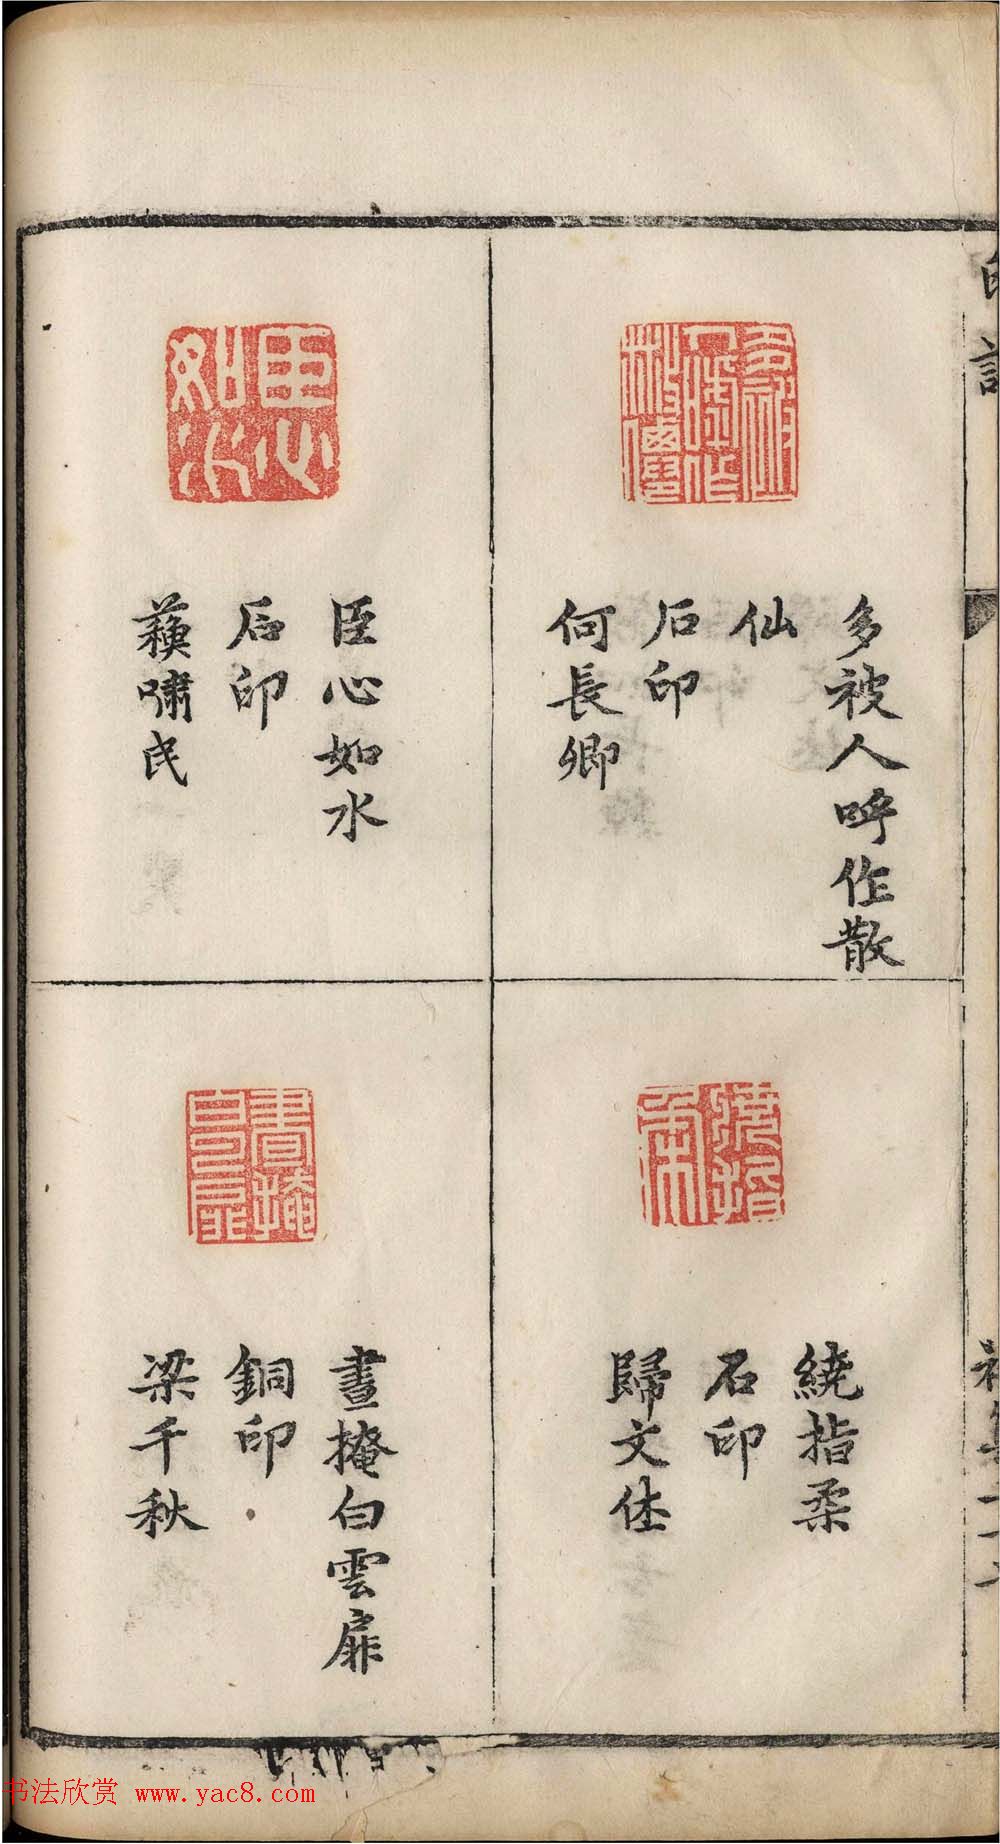 多被人呼作散
仙
石印
何長卿
臣心如水
石印
蘓嘯民
繞指柔
石印
歸文休
晝掩白雲扉
銅印
梁千秋
书法欣赏 www.yac8.com